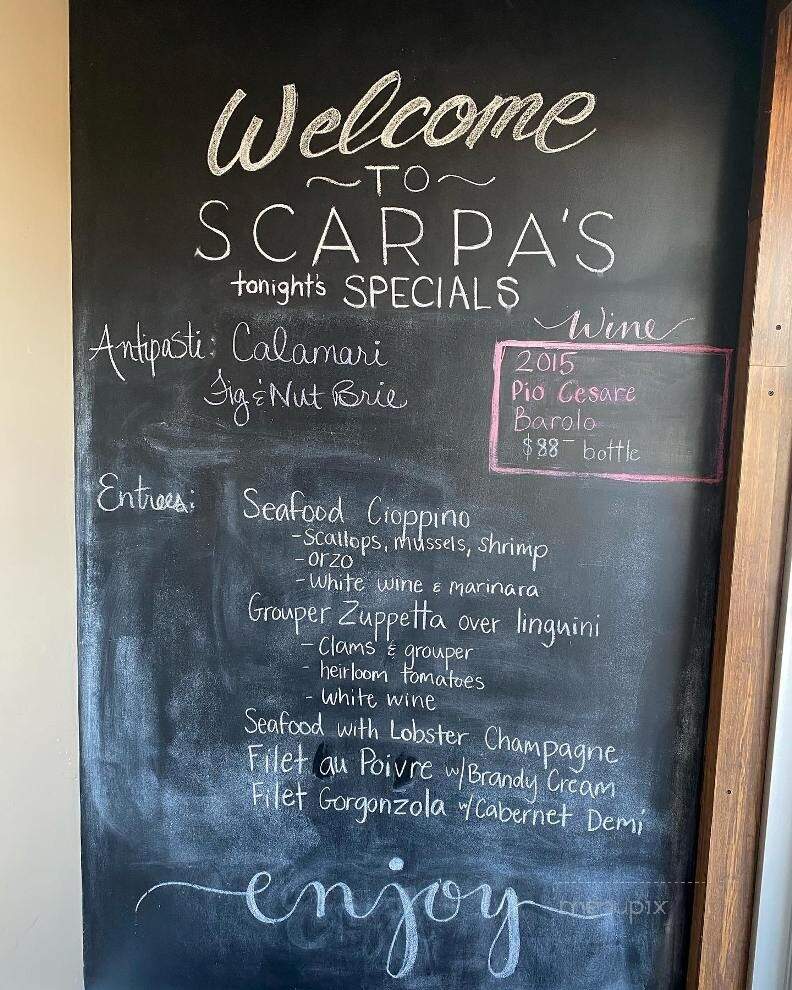 Welcome
~TO~
SCARPA'S
tonight's SPECIALS
Antipasti: Calamari
Fig & Nut Brie
Wine
2015
Pio Cesare
Barolo
$88- bottle
Entrees:
Seafood Cioppino
-Scallops, mussels, shrimp
-orzo
-white wine & marinara
Grouper Zuppetta over linguini
-Clams & grouper
- heirloom tomatoes
- white wine
Seafood with Lobster Champagne
Filet au Poivre w/Brandy Cream
Filet Gorgonzola w/Cabernet Demi
enjoy
menupix